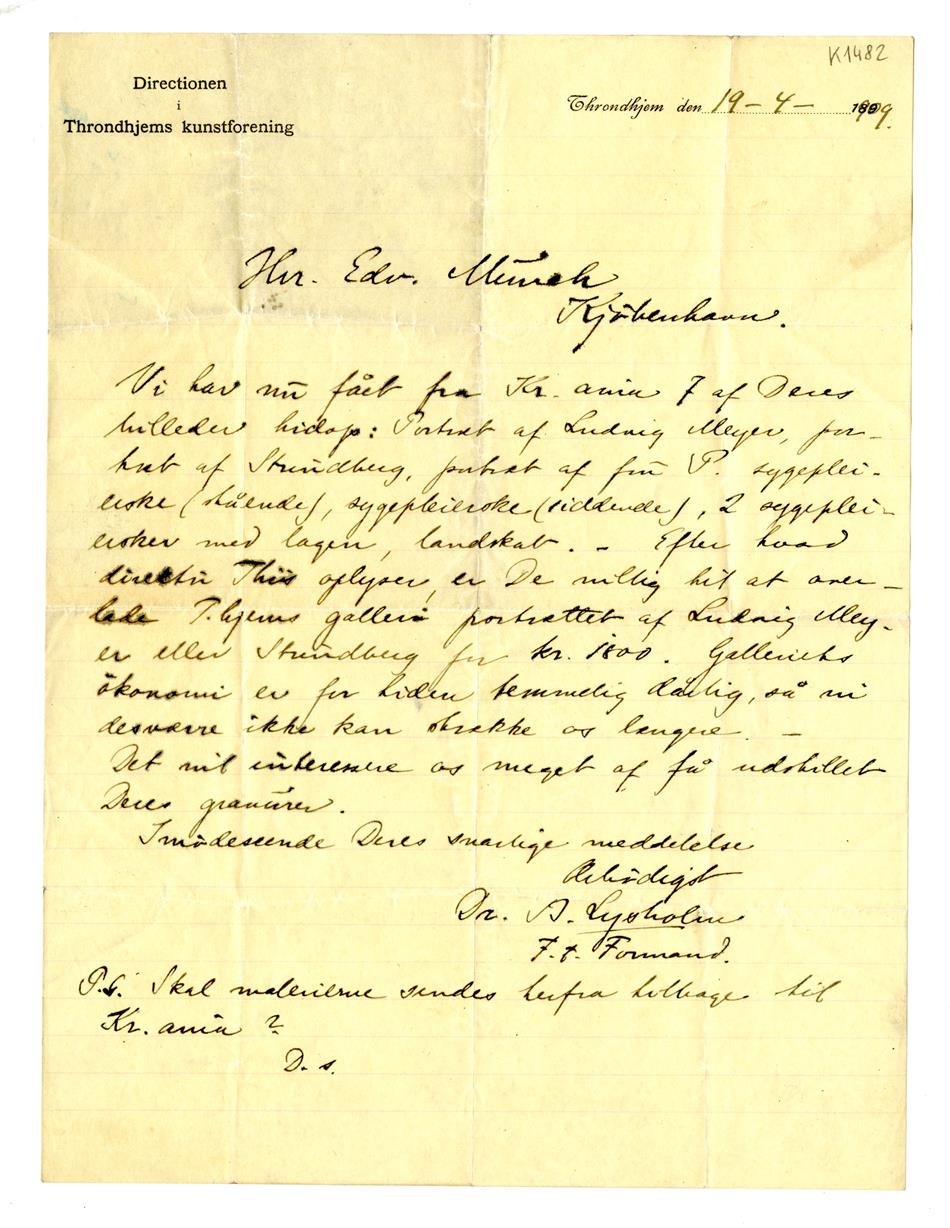 K1482
Directionen
i
Throndhjems kunstforening
Throndhjem den 19 – 4 – 1909.
Hrr. Edv. Munch
Kjöbenhavn.
Vi har nu fået fra Kr. ania 7 af Deres
billeder hidop: Portræt af Ludvig Meyer, por-
træt af Strindberg, portræt af fru P. sygeplei-
erske (stående), sygepleierske (siddende), 2 sygeplei-
ersker med lagen, landskab. – Efter hvad
direktør Thiis oplyser, er De villig til at over-
lade T.hjems galleri portrættet af Ludvig Mey-
er eller Strindberg for kr. 1800. Galleriets
ökonomi er for tiden temmelig dårlig, så vi
desværre ikke kan strække os længere. –
Det vil interessere os meget at få udstillet
Deres gravürer.
Imödeseende Deres snarlige meddelelse
Ærbödigst
Dr. A. Lysholm
F. t. Formand.
P.S. Skal malerierne sendes herfra tilbage til
Kr. ania?
D. s.